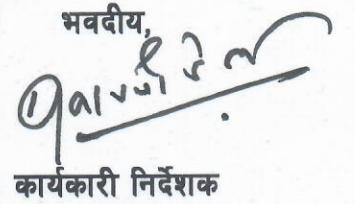 भवदीय,
कार्यकारी निर्देशक